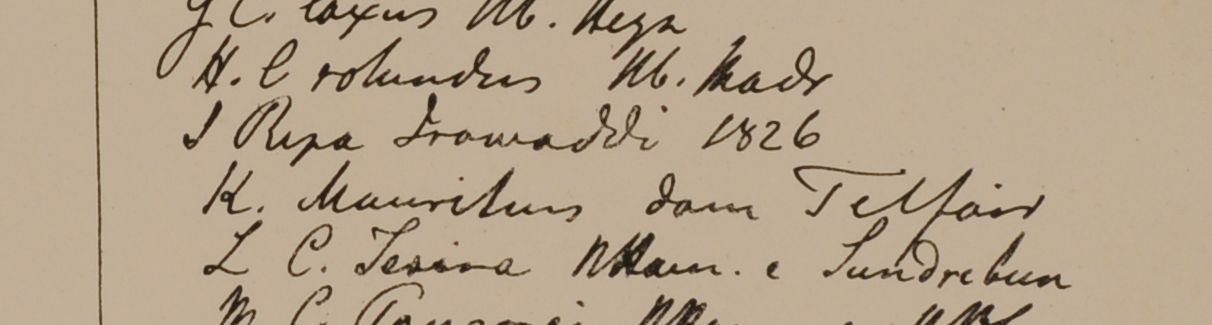 G C. laxus Hb. Heyn
H. C rotundus Hb. Madr
I Ripa Irawaddi 1826
K. Mauritius dom Telfair
L C. Tesina Hb Ham. e Sundrebun
M C.